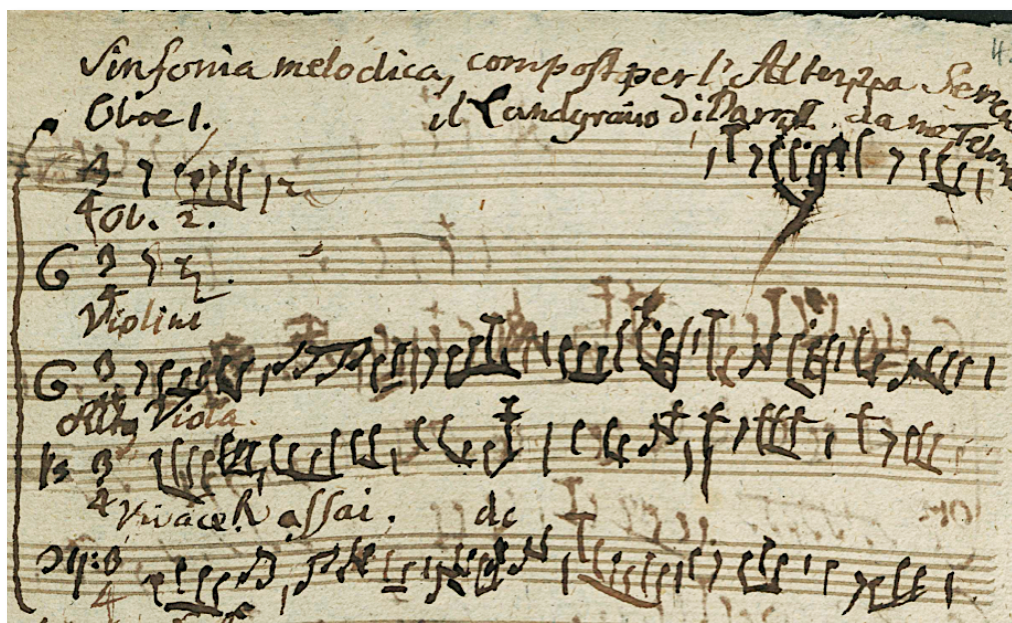 Sinfonia melodica, compost per l' Altezza Seren
Oboe 1. il Landgravio di Darmst. da me Telem
3
4 Ob. 2.
3
4
Violini
3
4
Viola.
3
4
Vivace assai.
3
4